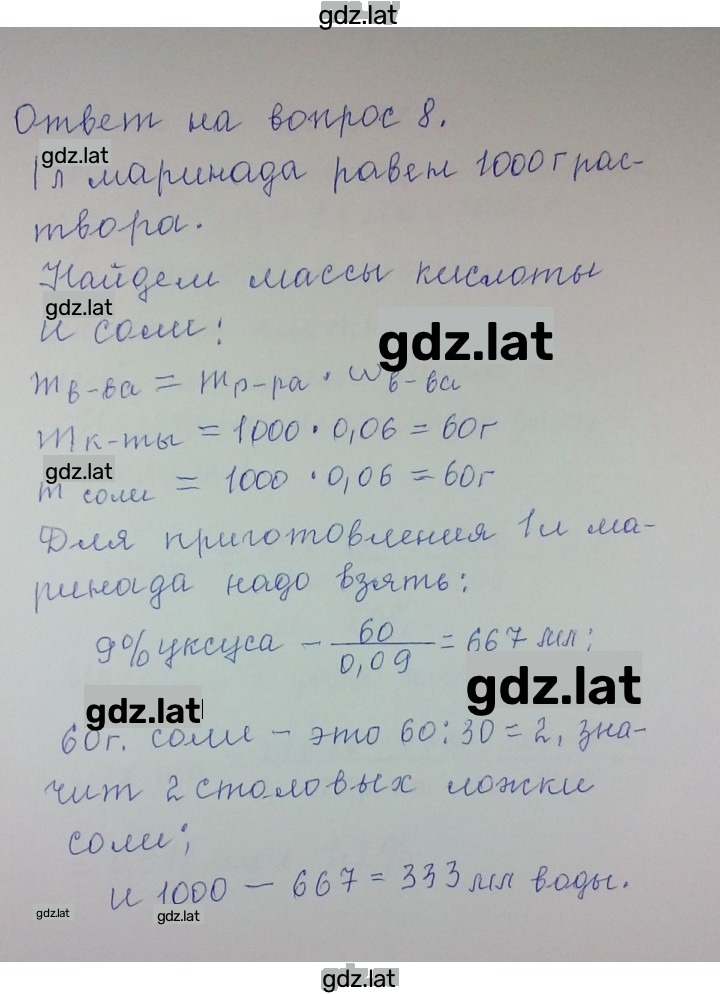 gdz.lat
Ответ на вопрос 8.
gdz.lat
1л маринада равен 1000г рас-
твора.
Найдем массы кислоты
gdz.lat
и соли:
gdz.lat
m в-ва = m р-ра · ω в-ва
m к-ты = 1000 · 0,06 = 60г
gdz.lat
m соли = 1000 · 0,06 = 60г
Для приготовления 1л ма-
ринада надо взять:
9% уксуса - 60/0,09 = 667 мл;
gdz.lat
gdz.lat
60г. соли - это 60:30=2, зна-
чит 2 столовых ложки
соли;
и 1000 - 667 = 333 мл воды.
gdz.lat
gdz.lat
gdz.lat